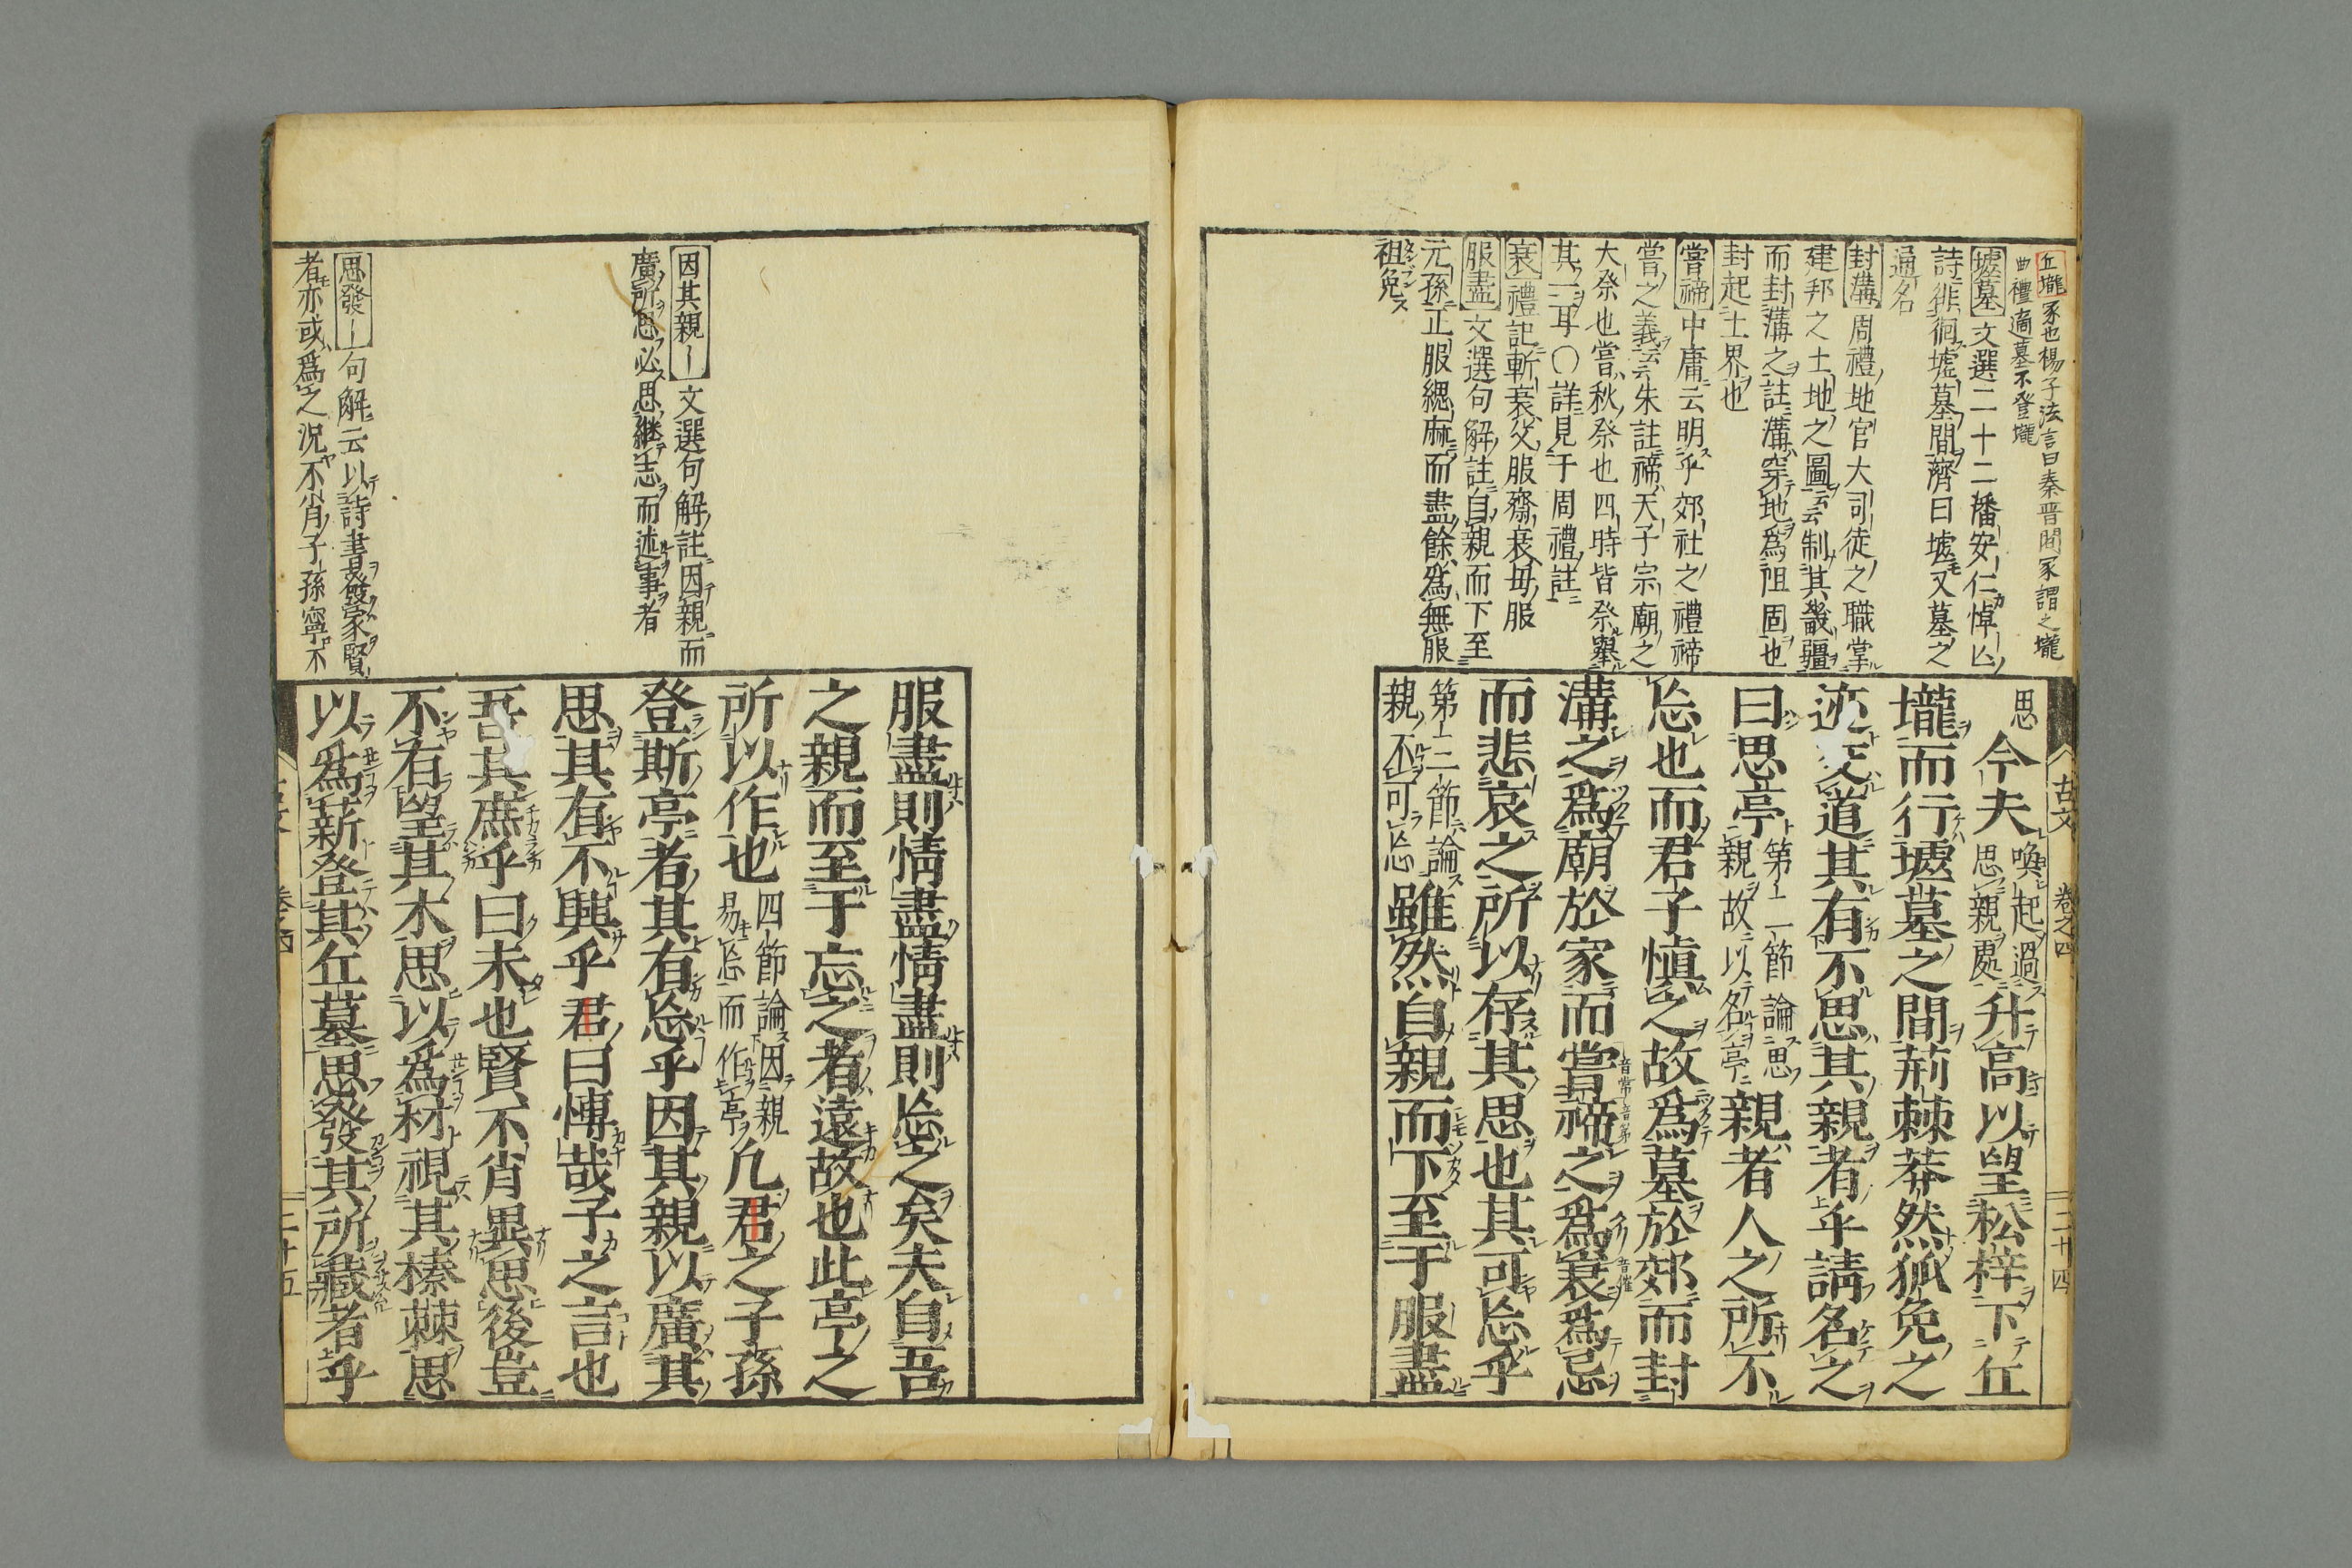 丘壠冢也楊子法言曰秦晋間冢謂之壠
曲禮適墓不登壠
墟墓文選二十二潘安仁悼亡
詩徘徊墟墓間濟曰墟又墓之
通名
封溝周禮地官大司徒之職掌
建邦之土地之圖云云制其畿疆
而封溝之註溝穿地爲阻固也
封起土界也
嘗禘中庸云明乎郊社之禮禘
嘗之義云云朱註禘天子宗廟之
大祭也嘗秋祭也四時皆祭擧
其一耳〇詳見于周禮註
衰禮記斬衰父服齋衰母服
服盡文選句解註自親而下至
元孫正服緦麻而盡餘爲無服
袒免
思今夫喚起過思親處升高以望松梓下丘
壠而行墟墓之間荊棘莽然狐兔之
迹交道其有不思其親者乎請名之
曰思亭第一節論思親故以名亭親者人之所不
忘也而君子愼之故爲墓於郊而封
溝之爲廟於家而嘗禘之爲衰爲忌
而悲哀之所以存其思也其可忘乎
第二節論親不可忘雖然自親而下至于服盡
古文
卷之四
二十四
因其親文選句解註因親而
廣所思必思継志而述事者
思發句解云以詩書發蒙賢
者亦或爲之况不肖子孫寧不
服盡則情盡情盡則忘之矣夫自吾
之親而至于忘之者遠故也此亭之
所以作也四節論因親易忘而作亭凡君之子孫
登斯亭者其有忘乎因其親以廣其
思其有不興乎君曰慱哉子之言也
吾其庶乎曰未也賢不肖異思後豈
不有望其木思以爲材視其榛棘思
以爲薪登其丘墓思發其所藏者乎
二十五